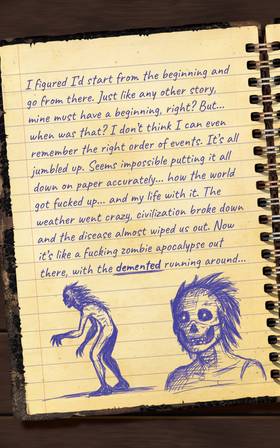 I figured I'd start from the beginning and
go from there. Just like any other story,
mine must have a beginning, right? But...
when was that? I don't think I can even
remember the right order of events. It's all
jumbled up. Seems impossible putting it all
down on paper accurately... how the world
got fucked up... and my life with it. The
weather went crazy, civilization broke down
and the disease almost wiped us out. Now
it's like a fucking zombie apocalypse out
there, with the demented running around...